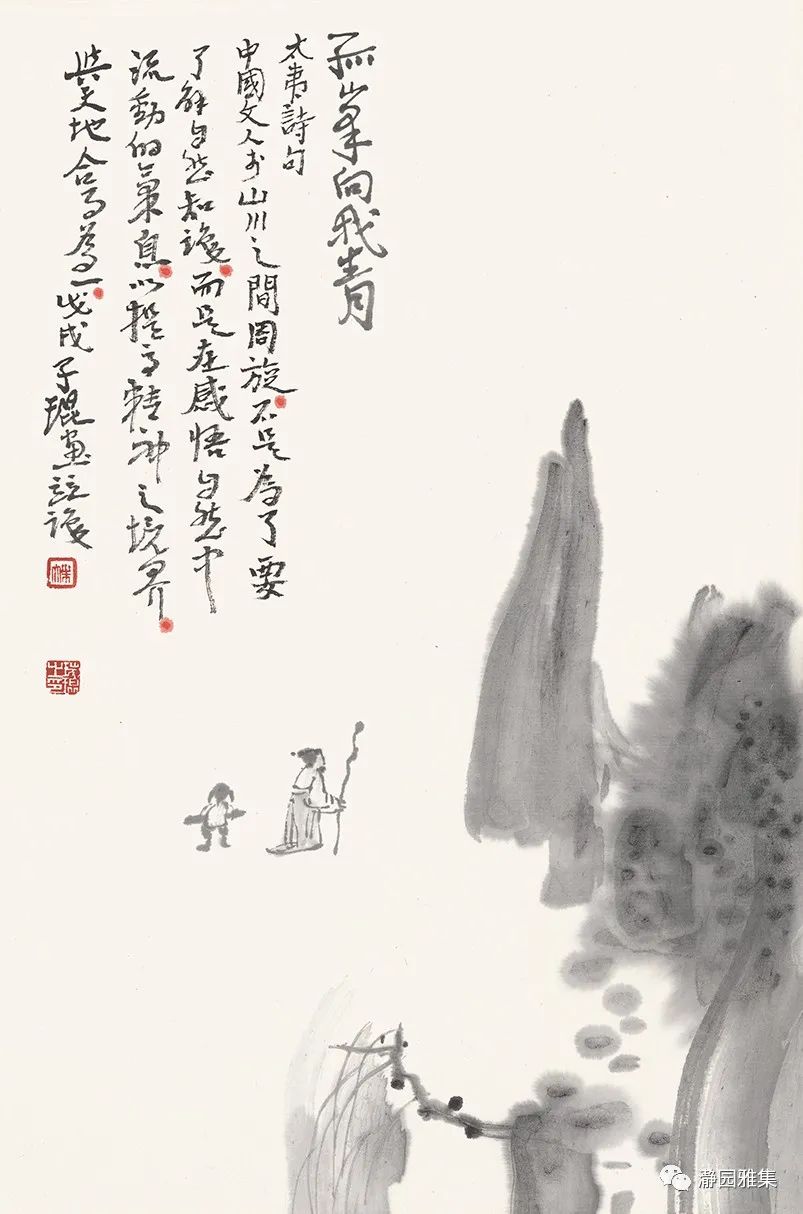 孤峯向我青
太夷詩句
中國文人於山川之間周旋不是為了要
了解自然知識而是在感悟自然中
流動的氣息以提高精神之境界
與天地合而為一戊戌子琨畫並識
瀞园雅集